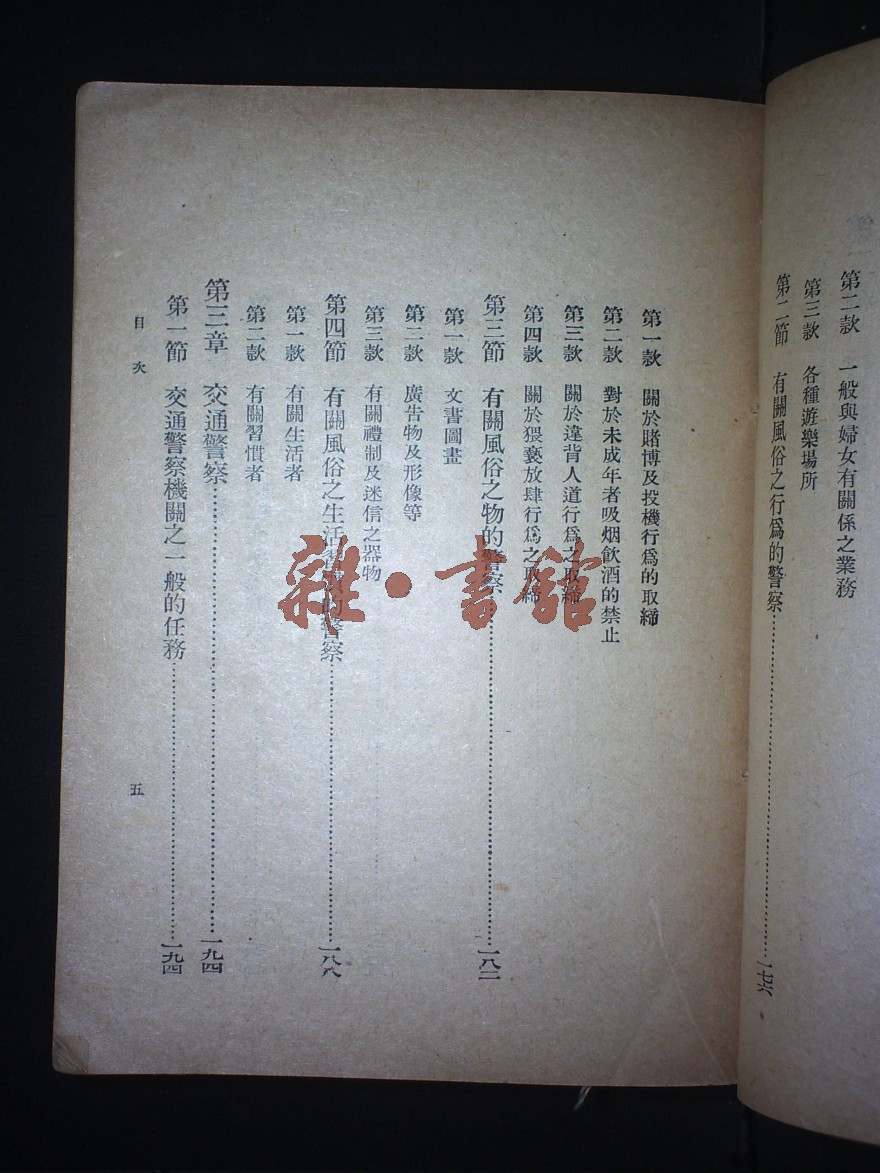 第二款　一般與婦女有關係之業務
第三款　各種遊樂場所
第二節　有關風俗之行爲的警察……………………一七六
第一款　關於賭博及投機行爲的取締
第二款　對於未成年者吸烟飲酒的禁止
第三款　關於違背人道行爲之取締
第四款　關於猥褻放肆行爲之取締
第三節　有關風俗之物的警察……………………一八二
第一款　文書圖畫
第二款　廣告物及形像等
第三款　有關禮制及迷信之器物
第四節　有關風俗之生活習慣的警察……………………一八八
第一款　有關生活者
第二款　有關習慣者
第三章　交通警察……………………一九四
第一節　交通警察機關之一般的任務……………………一九四
目次
五
雜·書館